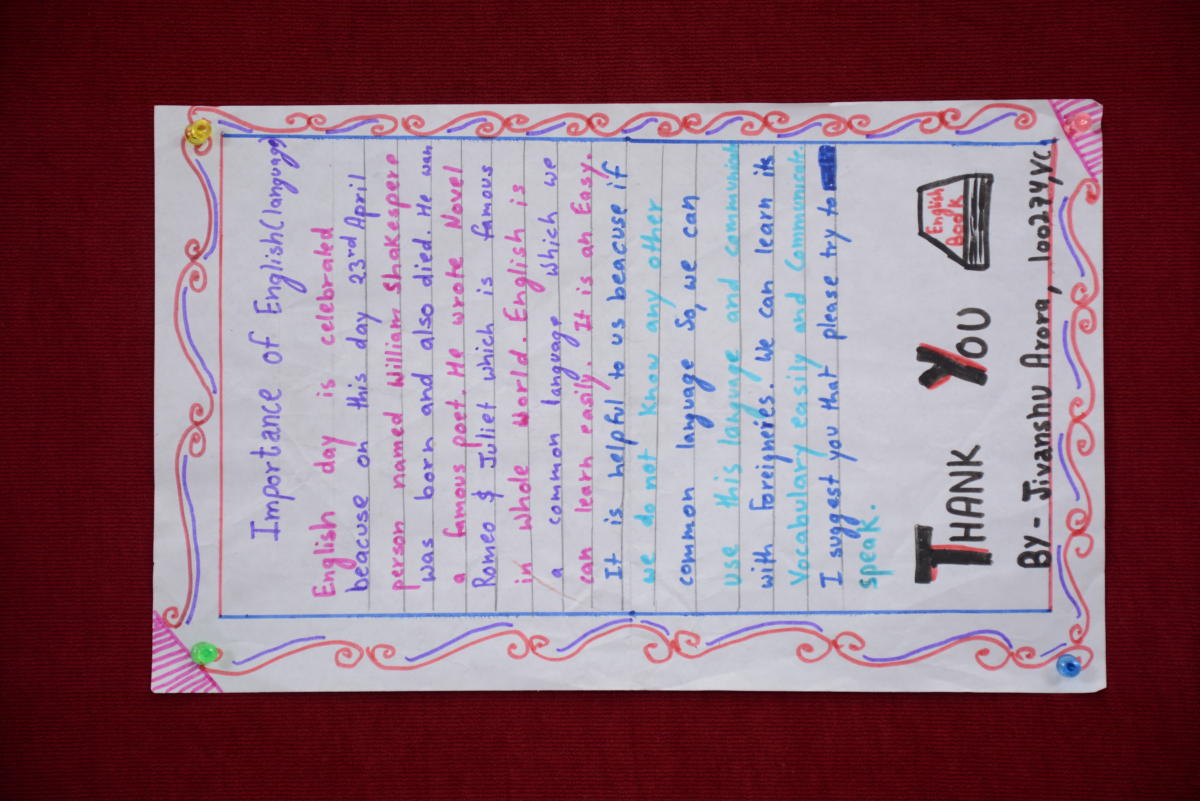 Importance of English(language)
English day is celebrated
beacuse on this day 23rd April
person named William Shakesper
was born and also died. He was
a famous poet. He wrote Novel
Romeo $ Juliet which is famous
in whole World. English is
a common language which we
can learn easily. It is an Easy.
It is helpful to us beacuse if
we do not know any other
common language So, we can
use this language and communicate
with Foreigneries. We can learn its
Vocabulary easily and Communicate.
I suggest you that please try to
speak.
THANK YOU
English
Book
By - Jivanshu Arora, 100274YC